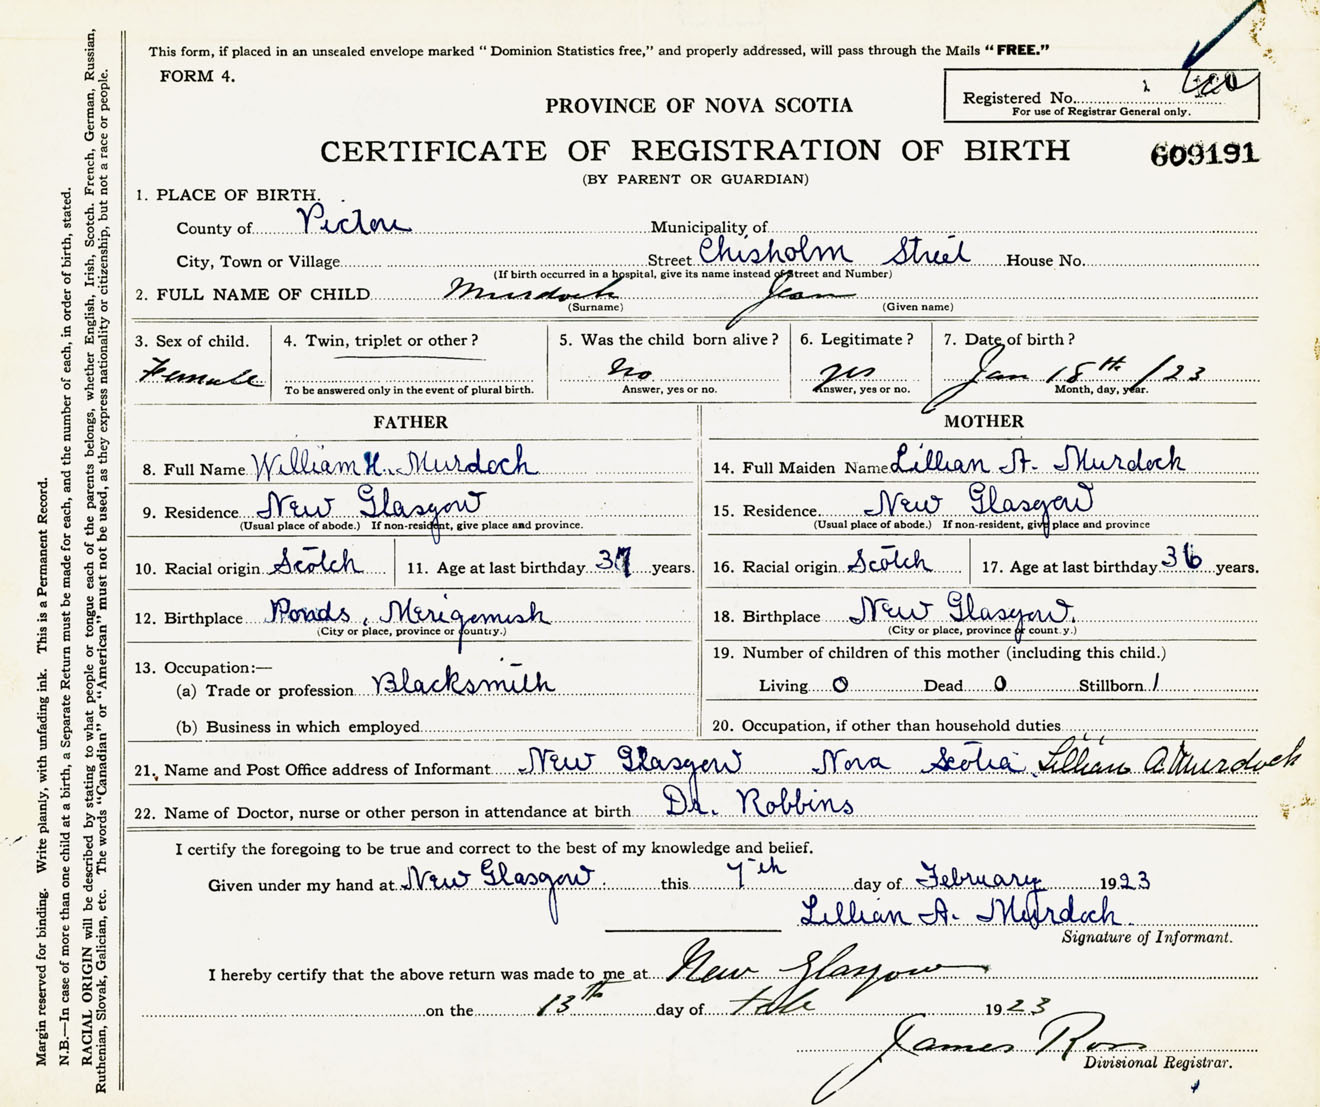 This form, if placed in an unsealed envelope marked " Dominion Statistics free," and properly addressed, will pass through the Mails "FREE."
FORM 4.
PROVINCE OF NOVA SCOTIA
Registered No.
For use of Registrar General only.
CERTIFICATE OF REGISTRATION OF BIRTH
609191
(BY PARENT OR GUARDIAN)
1. PLACE OF BIRTH.
County of Pictou Municipality of
City, Town or Village Street Chisholm Street House No.
(If birth occurred in a hospital, give its name instead of Street and Number)
2. FULL NAME OF CHILD Murdoch Jean
(Surname) (Given name)
3. Sex of child. 4. Twin, triplet or other? 5. Was the child born alive? 6. Legitimate? 7. Date of birth?
Female no yes Jan 18th /23
To be answered only in the event of plural birth. Answer, yes or no. Answer, yes or no. Month, day, year.
FATHER MOTHER
8. Full Name William H. Murdoch 14. Full Maiden Name Lillian A. Murdock
9. Residence New Glasgow 15. Residence New Glasgow
(Usual place of abode.) If non-resident, give place and province. (Usual place of abode.) If non-resident, give place and province
10. Racial origin Scotch 11. Age at last birthday 37 years. 16. Racial origin Scotch 17. Age at last birthday 36 years.
12. Birthplace Ponds, Merigomish 18. Birthplace New Glasgow.
(City or place, province or country.) (City or place, province or country.)
13. Occupation:— 19. Number of children of this mother (including this child.)
(a) Trade or profession Blacksmith Living 0 Dead 0 Stillborn 1
(b) Business in which employed 20. Occupation, if other than household duties
21. Name and Post Office address of Informant New Glasgow Nova Scotia Lillian A Murdoch
22. Name of Doctor, nurse or other person in attendance at birth Dr. Robbins
I certify the foregoing to be true and correct to the best of my knowledge and belief.
Given under my hand at New Glasgow this 7th day of February 1923
Lillian A. Murdoch.
Signature of Informant.
I hereby certify that the above return was made to me at New Glasgow
on the 13th day of Feb 1923
James Ross
Divisional Registrar.
Margin reserved for binding. Write plainly, with unfading ink. This is a Permanent Record.
N.B.—In case of more than one child at a birth, a Separate Return must be made for each, and the number of each, in order of birth, stated.
RACIAL ORIGIN will be described by stating to what people or tongue each of the parents belongs, whether English, Irish, Scotch. French, German, Russian,
Ruthenian, Slovak, Galician, etc. The words "Canadian" or "American" must not be used, as they express nationality or citizenship, but not a race or people.